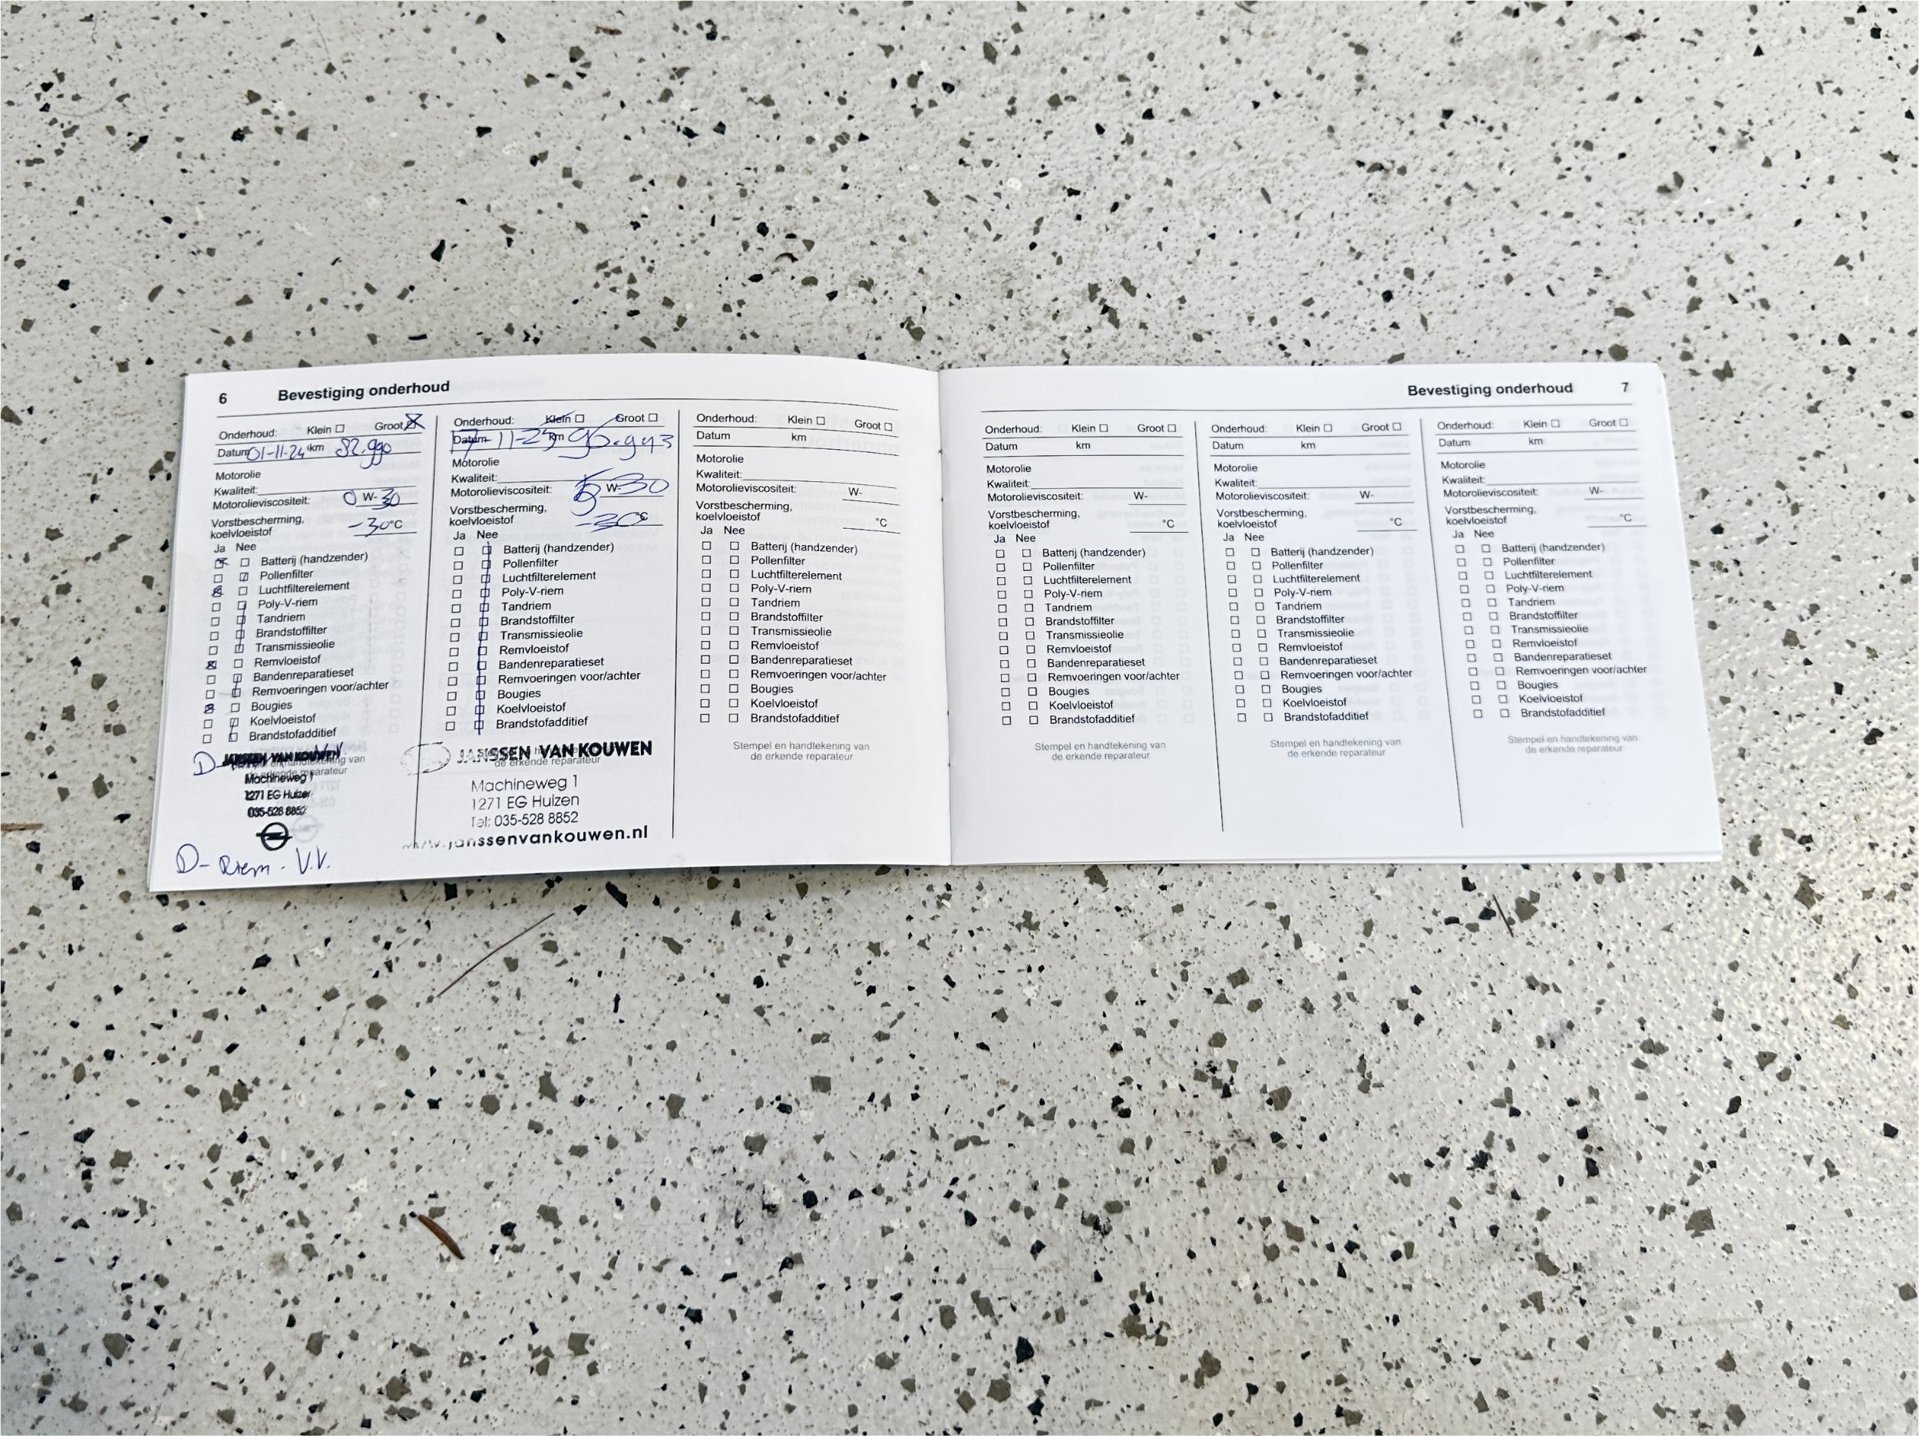 6 Bevestiging onderhoud
Onderhoud: Klein Groot
Datum 01-11-24 km 82.990
Motorolie
Kwaliteit:
Motorolieviscositeit: 0 W-30
Vorstbescherming,
koelvloeistof -30°C
Ja Nee
Batterij (handzender)
Pollenfilter
Luchtfilterelement
Poly-V-riem
Tandriem
Brandstoffilter
Transmissieolie
Remvloeistof
Bandenreparatieset
Remvoeringen voor/achter
Bougies
Koelvloeistof
Brandstofadditief
JANSSEN VAN KOUWEN
Machineweg 1
1271 EG Huizen
035-528 8852
D- Riem - V.V.
Onderhoud: Klein Groot
Datum 11-25 km 90.943
Motorolie
Kwaliteit:
Motorolieviscositeit: W-30
Vorstbescherming,
koelvloeistof -30°C
Ja Nee
Batterij (handzender)
Pollenfilter
Luchtfilterelement
Poly-V-riem
Tandriem
Brandstoffilter
Transmissieolie
Remvloeistof
Bandenreparatieset
Remvoeringen voor/achter
Bougies
Koelvloeistof
Brandstofadditief
JANSSEN VAN KOUWEN
de erkende reparateur
Machineweg 1
1271 EG Huizen
Tel: 035-528 8852
janssenvankouwen.nl
Onderhoud: Klein Groot
Datum km
Motorolie
Kwaliteit:
Motorolieviscositeit: W-
Vorstbescherming,
koelvloeistof °C
Ja Nee
Batterij (handzender)
Pollenfilter
Luchtfilterelement
Poly-V-riem
Tandriem
Brandstoffilter
Transmissieolie
Remvloeistof
Bandenreparatieset
Remvoeringen voor/achter
Bougies
Koelvloeistof
Brandstofadditief
Stempel en handtekening van
de erkende reparateur
Bevestiging onderhoud 7
Onderhoud: Klein Groot
Datum km
Motorolie
Kwaliteit:
Motorolieviscositeit: W-
Vorstbescherming,
koelvloeistof °C
Ja Nee
Batterij (handzender)
Pollenfilter
Luchtfilterelement
Poly-V-riem
Tandriem
Brandstoffilter
Transmissieolie
Remvloeistof
Bandenreparatieset
Remvoeringen voor/achter
Bougies
Koelvloeistof
Brandstofadditief
Stempel en handtekening van
de erkende reparateur
Onderhoud: Klein Groot
Datum km
Motorolie
Kwaliteit:
Motorolieviscositeit: W-
Vorstbescherming,
koelvloeistof °C
Ja Nee
Batterij (handzender)
Pollenfilter
Luchtfilterelement
Poly-V-riem
Tandriem
Brandstoffilter
Transmissieolie
Remvloeistof
Bandenreparatieset
Remvoeringen voor/achter
Bougies
Koelvloeistof
Brandstofadditief
Stempel en handtekening van
de erkende reparateur
Onderhoud: Klein Groot
Datum km
Motorolie
Kwaliteit:
Motorolieviscositeit: W-
Vorstbescherming,
koelvloeistof °C
Ja Nee
Batterij (handzender)
Pollenfilter
Luchtfilterelement
Poly-V-riem
Tandriem
Brandstoffilter
Transmissieolie
Remvloeistof
Bandenreparatieset
Remvoeringen voor/achter
Bougies
Koelvloeistof
Brandstofadditief
Stempel en handtekening van
de erkende reparateur